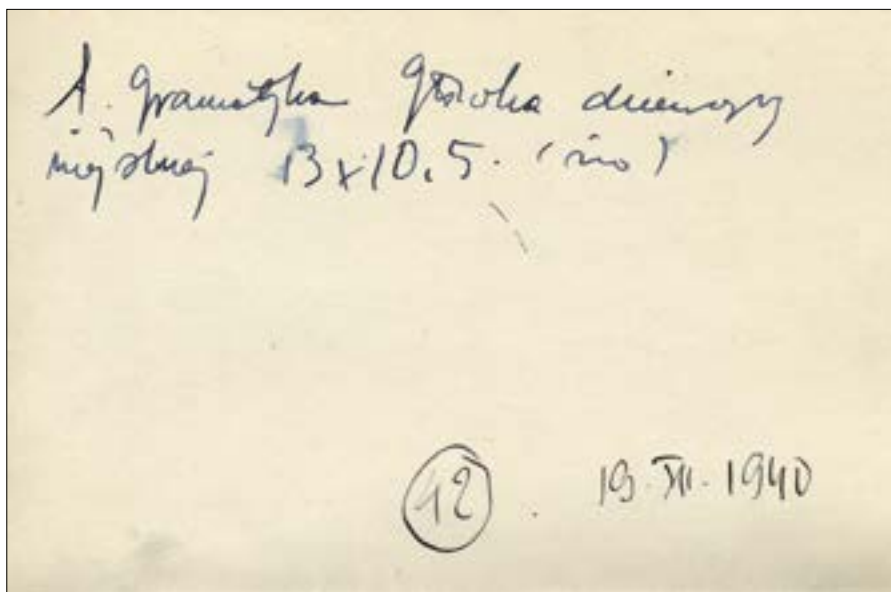 A. Gramatyka Główka dziewczy
wiejskiej 13x10,5.
42. 19.XII.1940